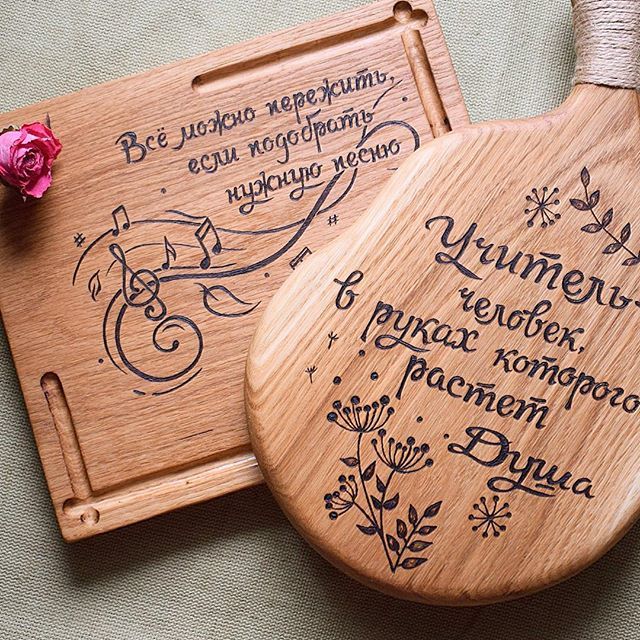 Всё можно пережить,
если подобрать
нужную песню
Учитель
человек,
в руках которого
растет
Душа